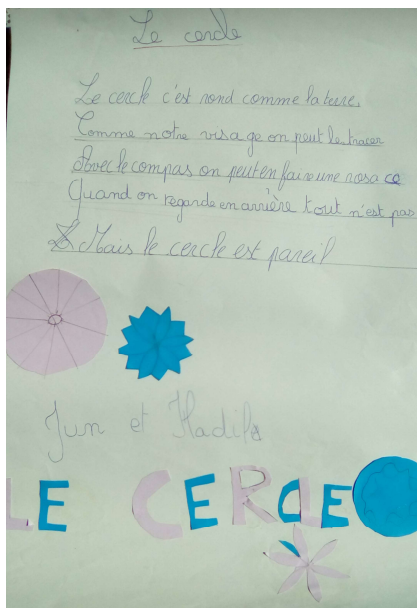 Le cercle
Le cercle c'est rond comme la terre.
Comme notre visage on peut le tracer
Avec le compas on peut en faire une rosace
Quand on regarde en arrière tout n'est pas
Mais le cercle est pareil
Jun et Hadil
LE CERCLE